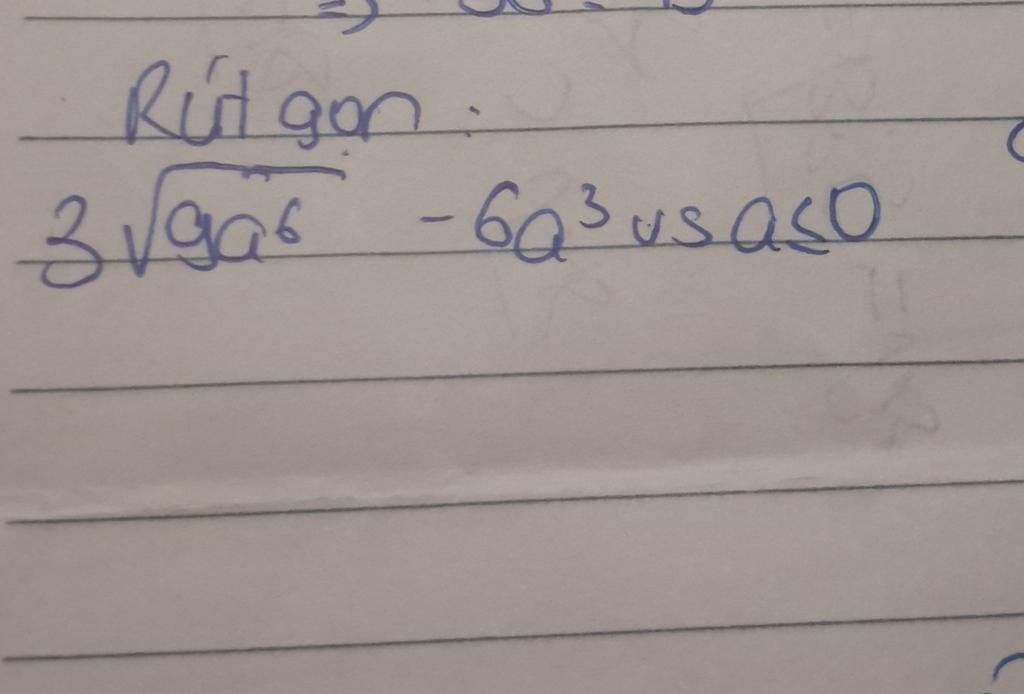 Rút gọn :
3√9a⁶ - 6a³ vs a≤0